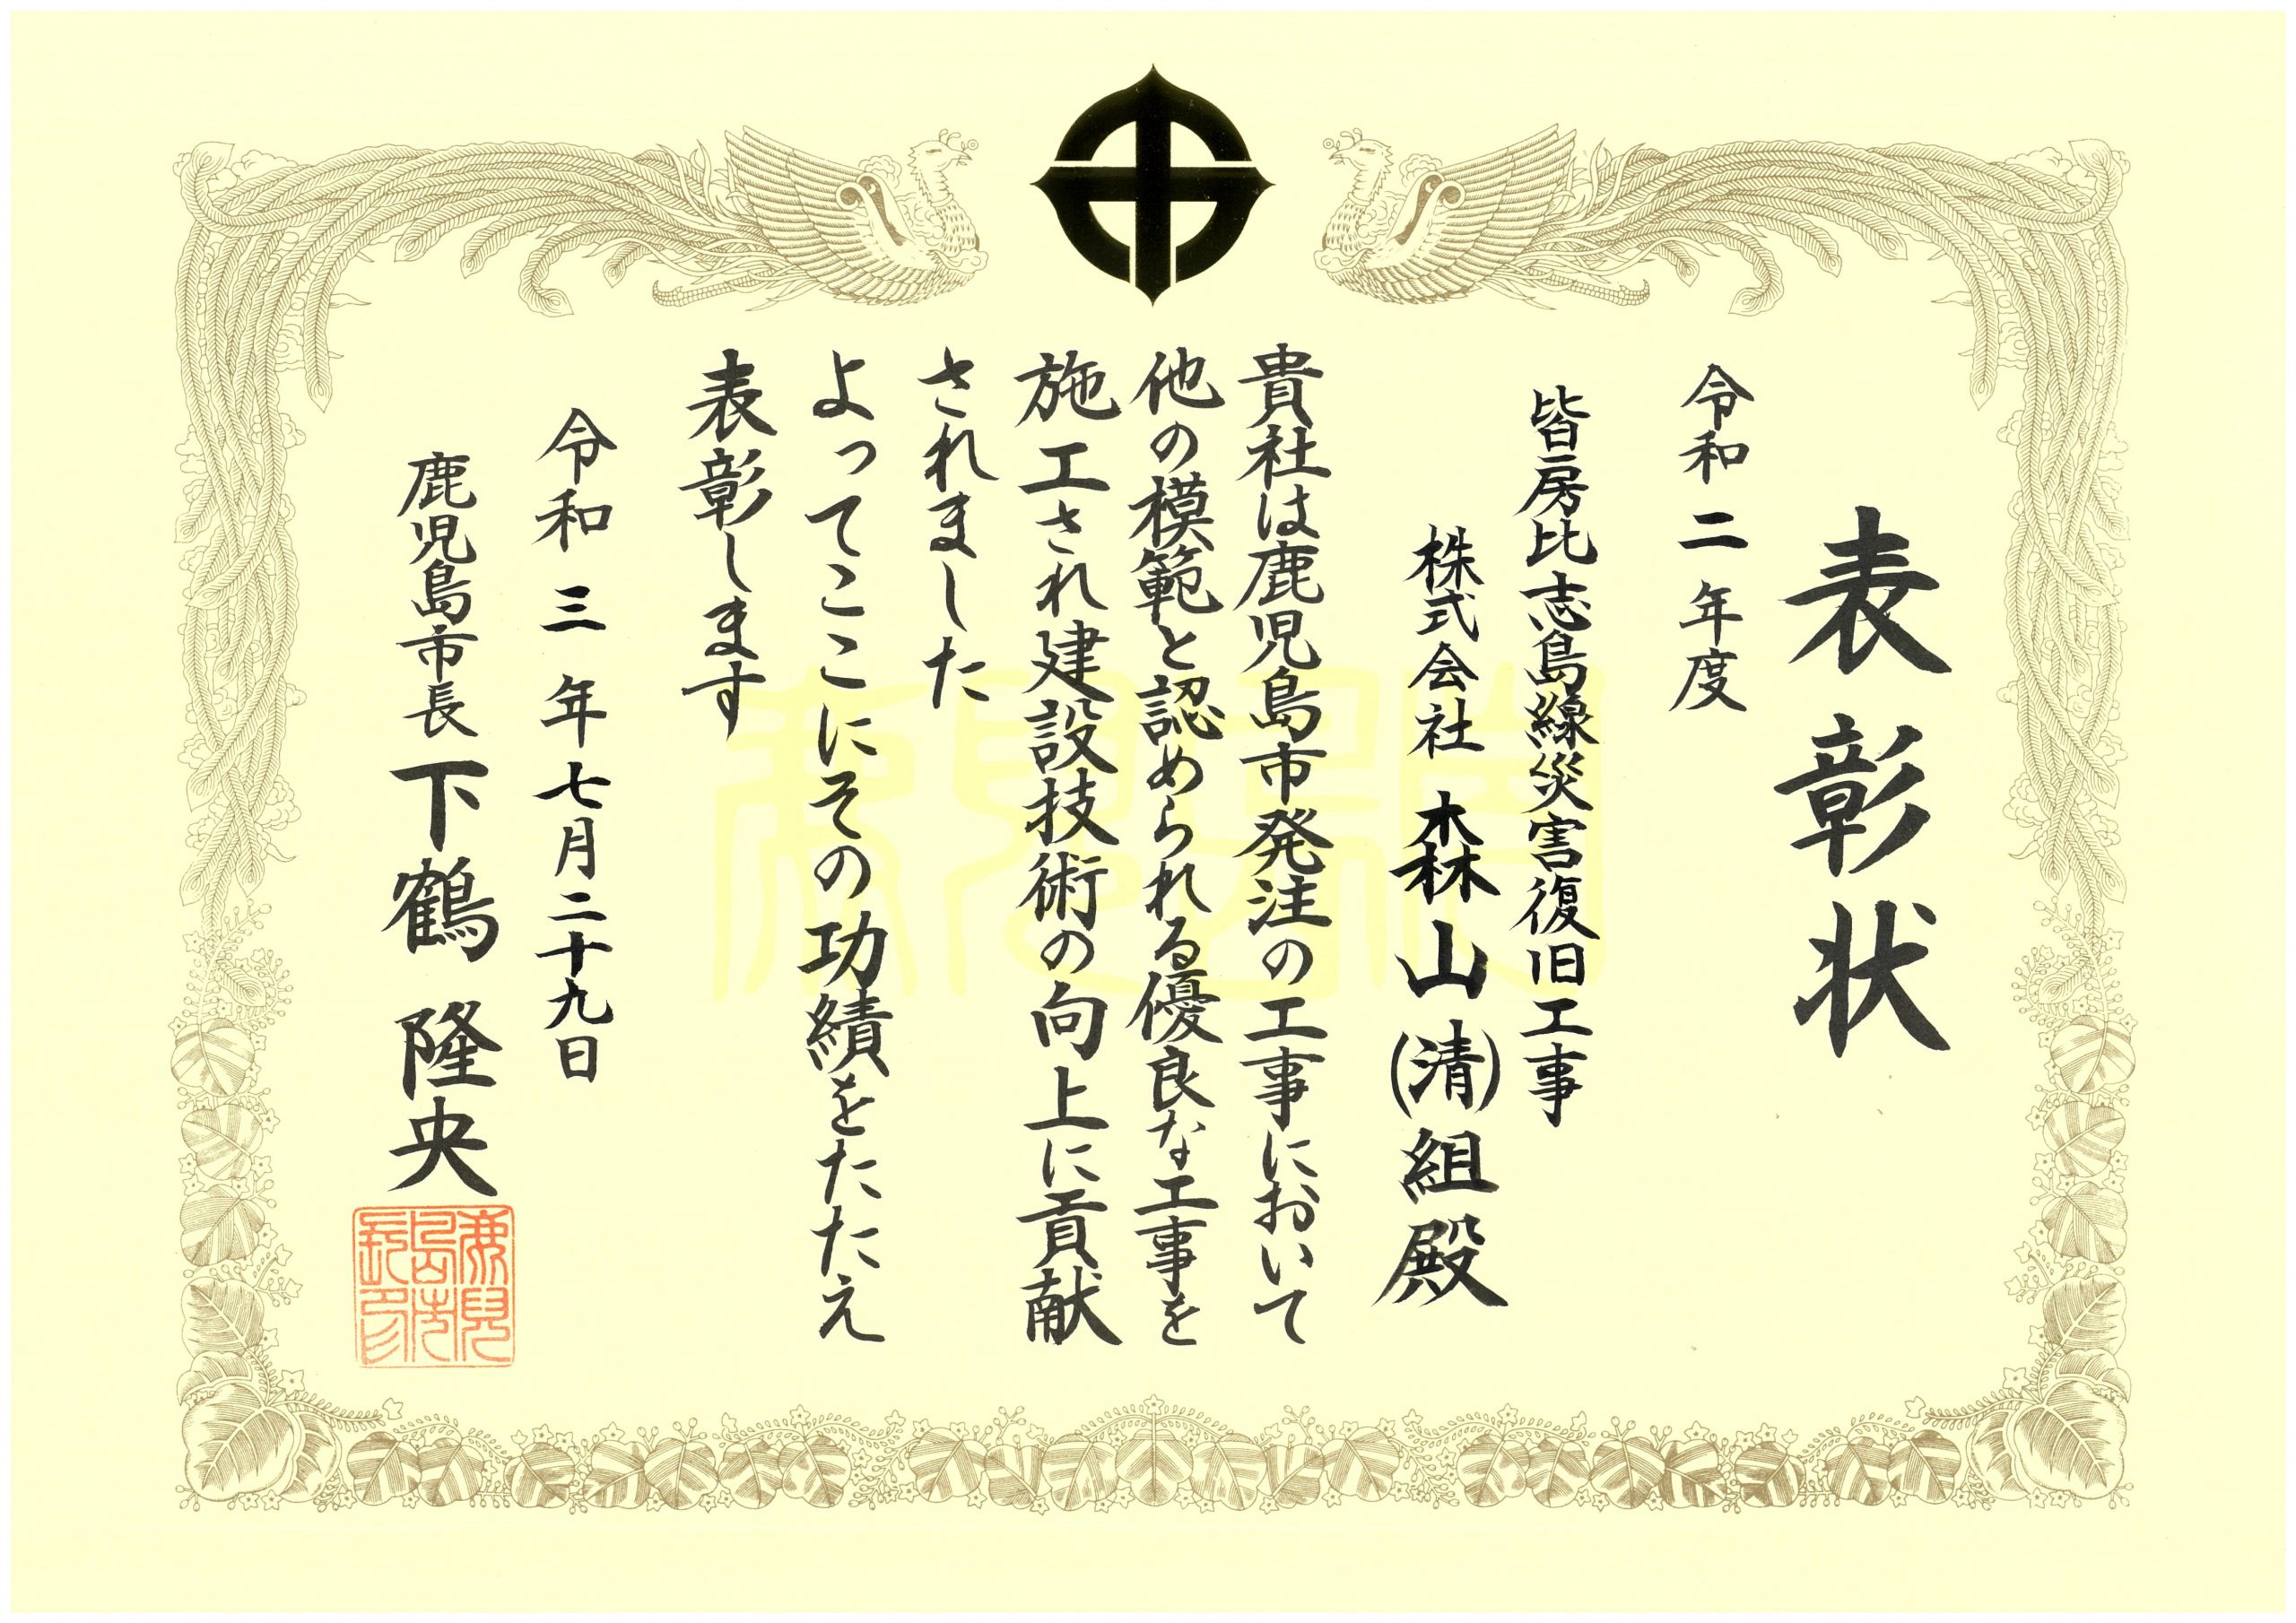 表彰状
令和二年度
皆房比志島線災害復旧工事
株式会社 森山(清)組殿
貴社は鹿児島市発注の工事において
他の模範と認められる優良な工事を
施工され建設技術の向上に貢献
されました
よってここにその功績をたたえ
表彰します
令和三年七月二十九日
鹿児島市長 下鶴 隆央
鹿児島市長印